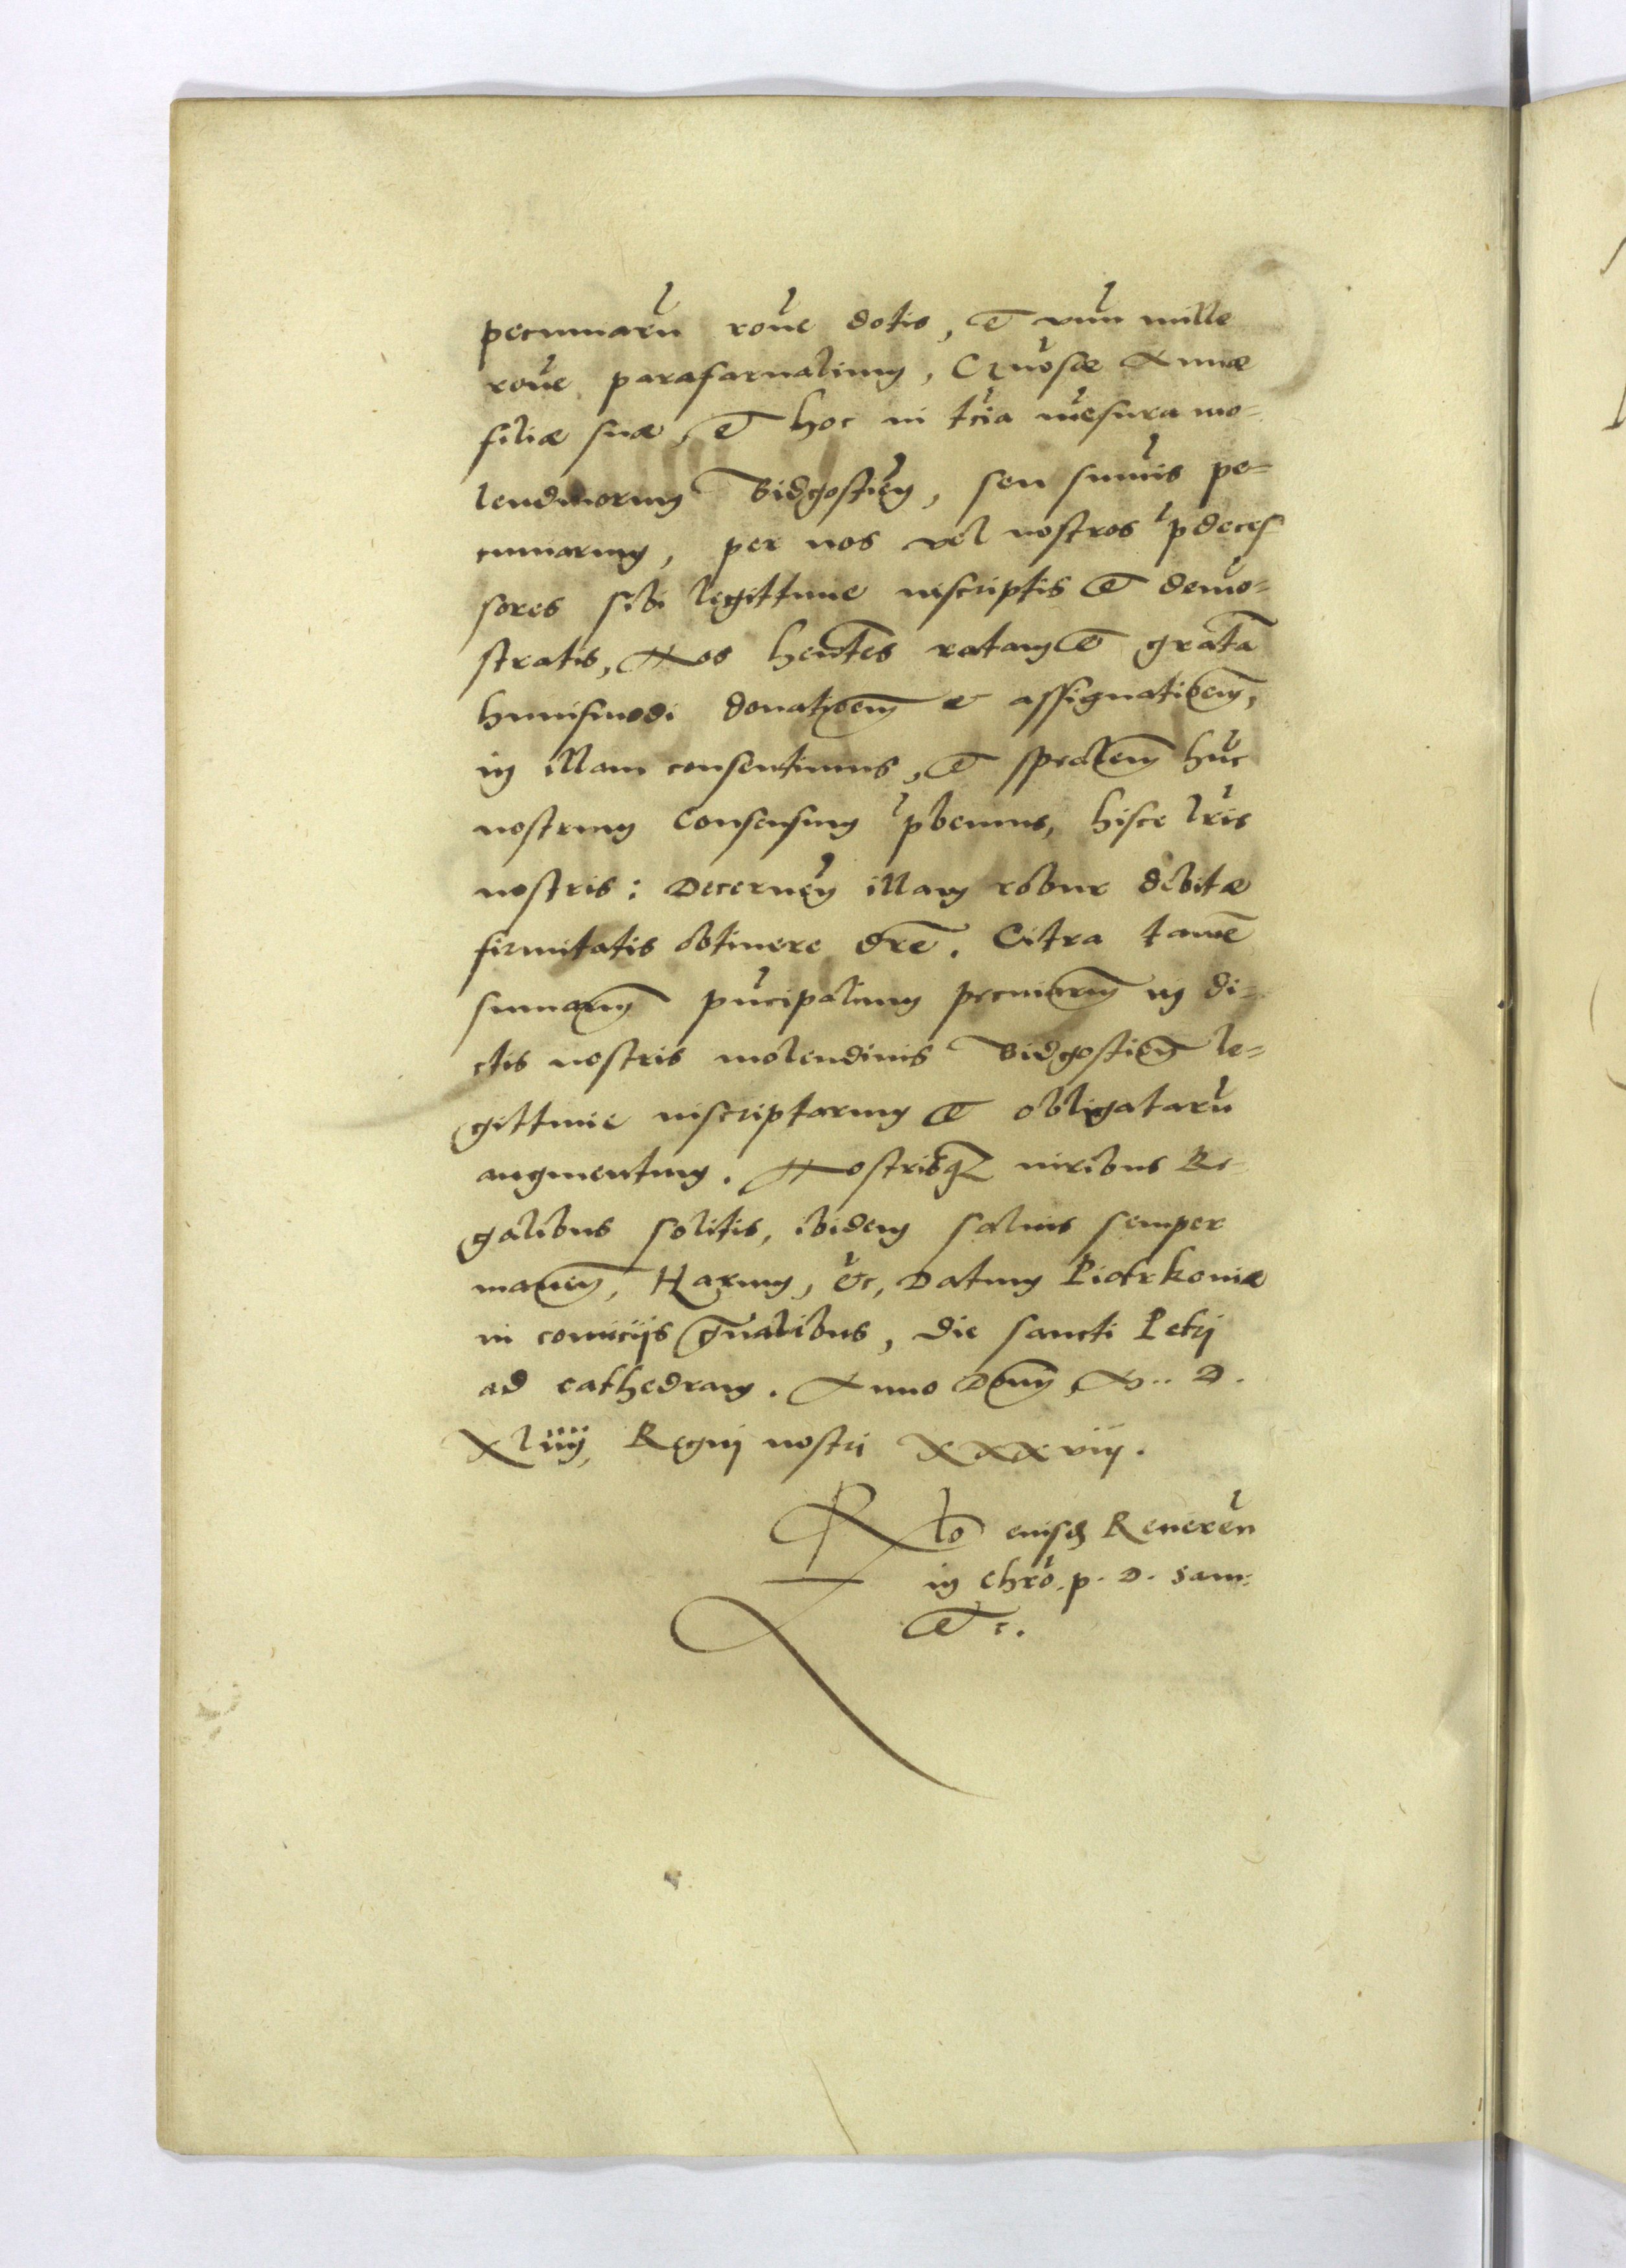 pecuniarũ rõne dotis, et vnũ mille
rõne parafarnalium, Gñosae Annae
filiae suae, et hoc in tcia mẽsura mo-
lendinorum Bidgostieñ, seu sum̃is pe-
cuniarum, per nos vel nostros p̃deces
sores sibi legittime inscriptis et demõ-
stratis, Nos hẽntes ratam et gratã
huiusmodi donatiõem et assignatiõem,
in illam consentimus, et spealem hũc
nostrum Consensum p̃bemus, hisce lr̃is
nostris: Decerneñ illam robur debitae
firmitatis obtinere dr̃e. Citra tamẽ
summarum pñcipalium pecuniarum in di-
ctis nostris molendinis Bidgostieñ le-
gittime inscriptarum et obligatarũ
augmentum. Nostrisq₃ iuribus Re-
galibus solitis, ibidem saluis semper
maneñ, Harum, &c, Datum Piotrkouiae
in comicijs g̃nalibus, die sancti Petri
ad cathedram. Anno Domĩ M.. D.
XLiiij, Regni nostri XXXviij.
R̃lo eiusd Reuereñ
in Chrõ. p. D. Sam:
etc.